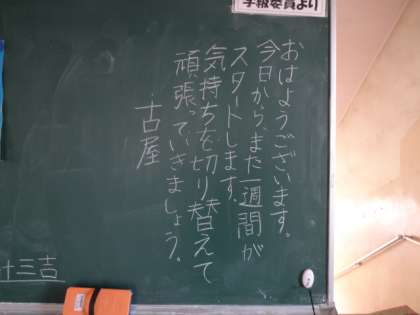 学級委員より
おはようございます。
今日から、また一週間が
スタートします。
気持ちを切り替えて
頑張っていきましょう。
古屋
十三吉